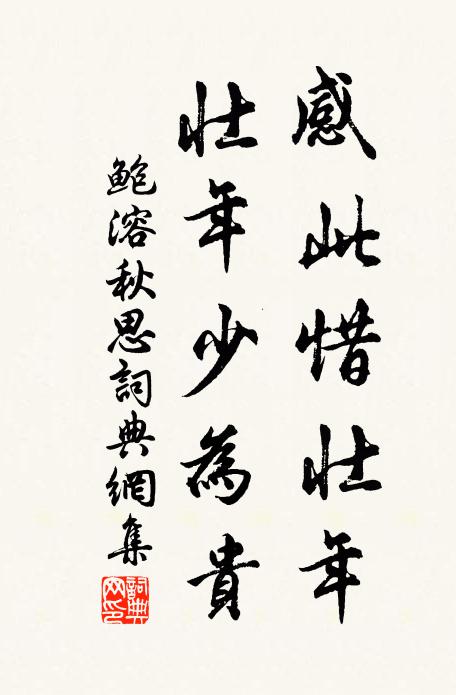 感此惜壯年
壯年少為貴
鲍溶秋思詞典網集
詞典網印